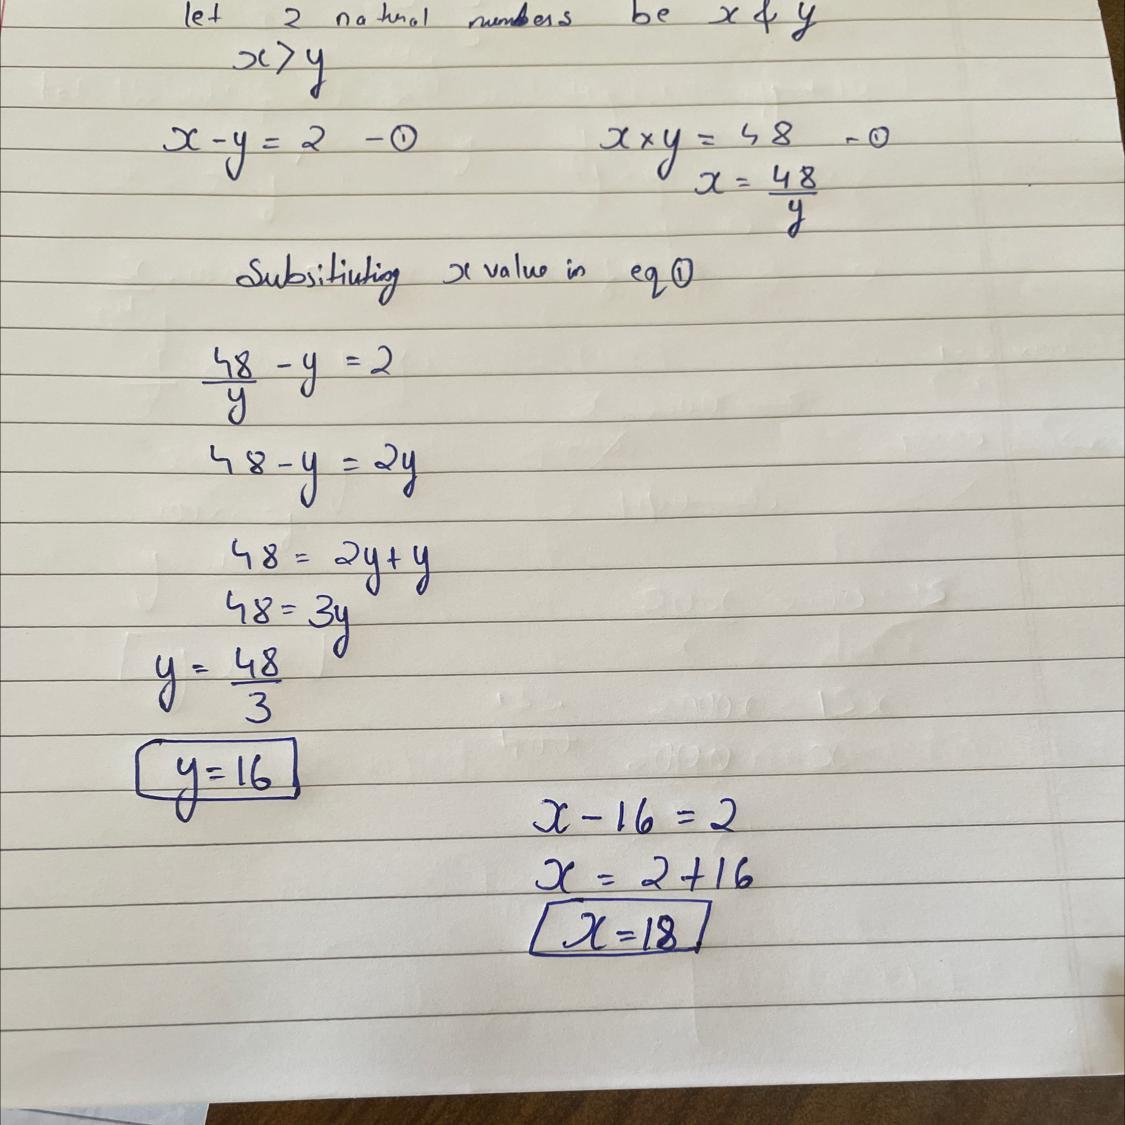 let 2 natural numbers be x & y
x > y
x - y = 2 - ① x × y = 48 - ①
x = 48/y
Subsitiuting x value in eq ①
48/y - y = 2
48 - y = 2y
48 = 2y + y
48 = 3y
y = 48/3
y = 16
x - 16 = 2
x = 2 + 16
x = 18